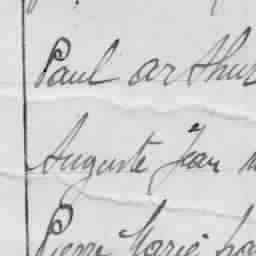 Paul arthur
Auguste Jean
Pierre Marie